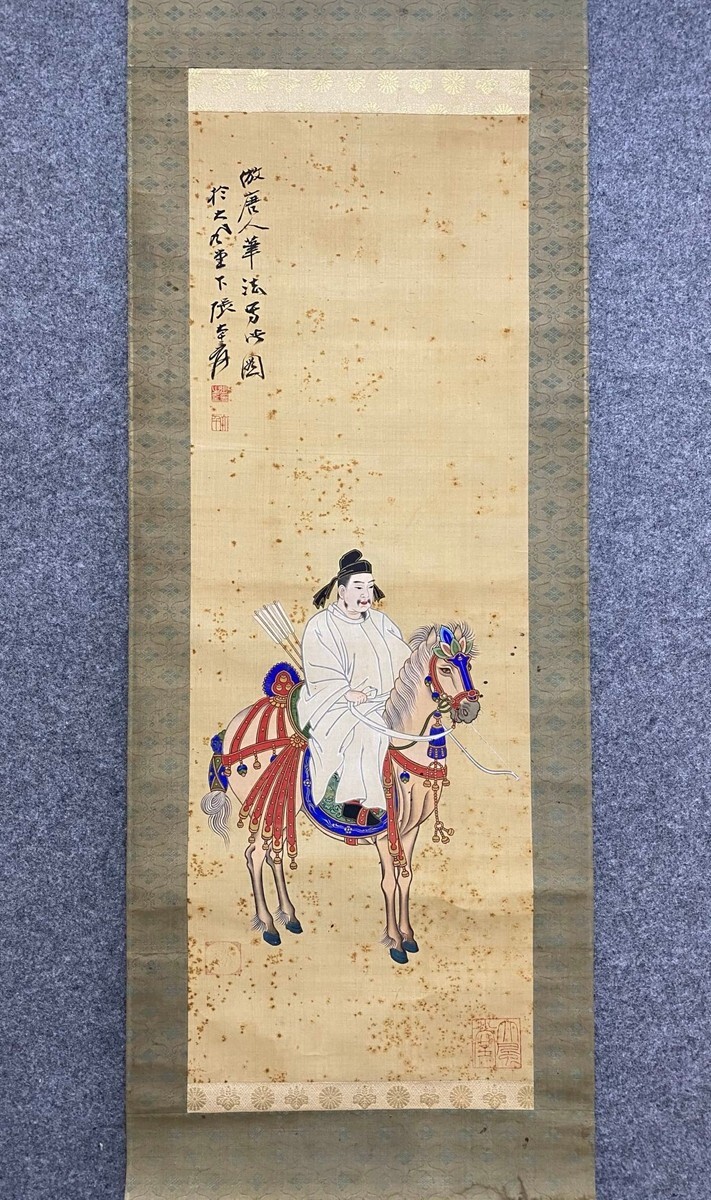 倣唐人筆法写此圖
於大風堂下張大千爰